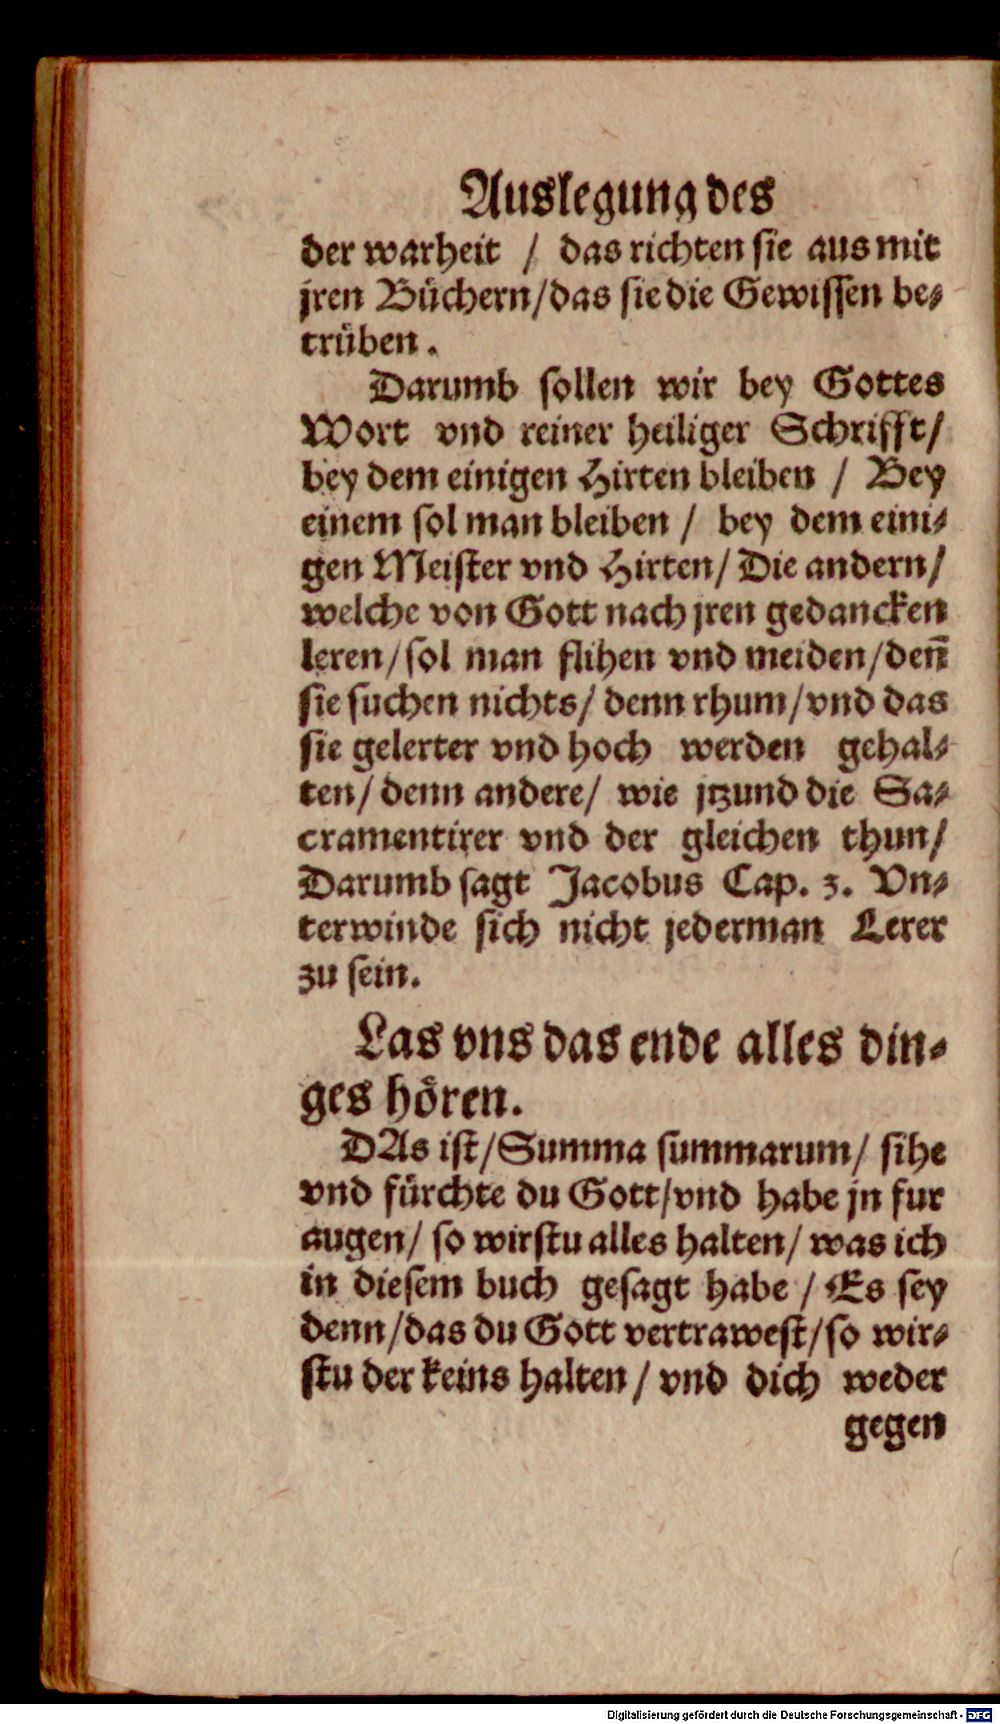 Auslegung des
der warheit / das richten sie aus mit
jren Büchern/das sie die Gewissen be-
trüben.
Darumb sollen wir bey Gottes
Wort vnd reiner heiliger Schrifft/
bey dem einigen Hirten bleiben / Bey
einem sol man bleiben / bey dem eini-
gen Meister vnd Hirten/ Die andern/
welche von Gott nach jren gedancken
leren/sol man flihen vnd meiden/den̄
sie suchen nichts/ denn rhum/vnd das
sie gelerter vnd hoch werden gehal-
ten/ denn andere/ wie jtzund die Sa-
cramentirer vnd der gleichen thun/
Darumb sagt Jacobus Cap. 3. Vn-
terwinde sich nicht jederman Lerer
zu sein.
Las vns das ende alles din-
ges hören.
DAs ist/Summa summarum/ sihe
vnd fürchte du Gott/vnd habe jn fur
augen/ so wirstu alles halten/ was ich
in diesem buch gesagt habe / Es sey
denn/das du Gott vertrawest/so wir-
stu der keins halten / vnd dich weder
gegen
Digitalisierung gefördert durch die Deutsche Forschungsgemeinschaft - DFG